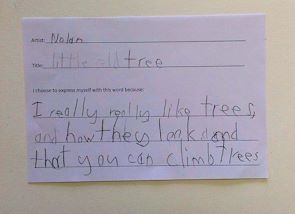 Artist: Nolan
Title: little old tree
I choose to express myself with this word because:
I really really like trees,
and how they look and
that you can climb trees